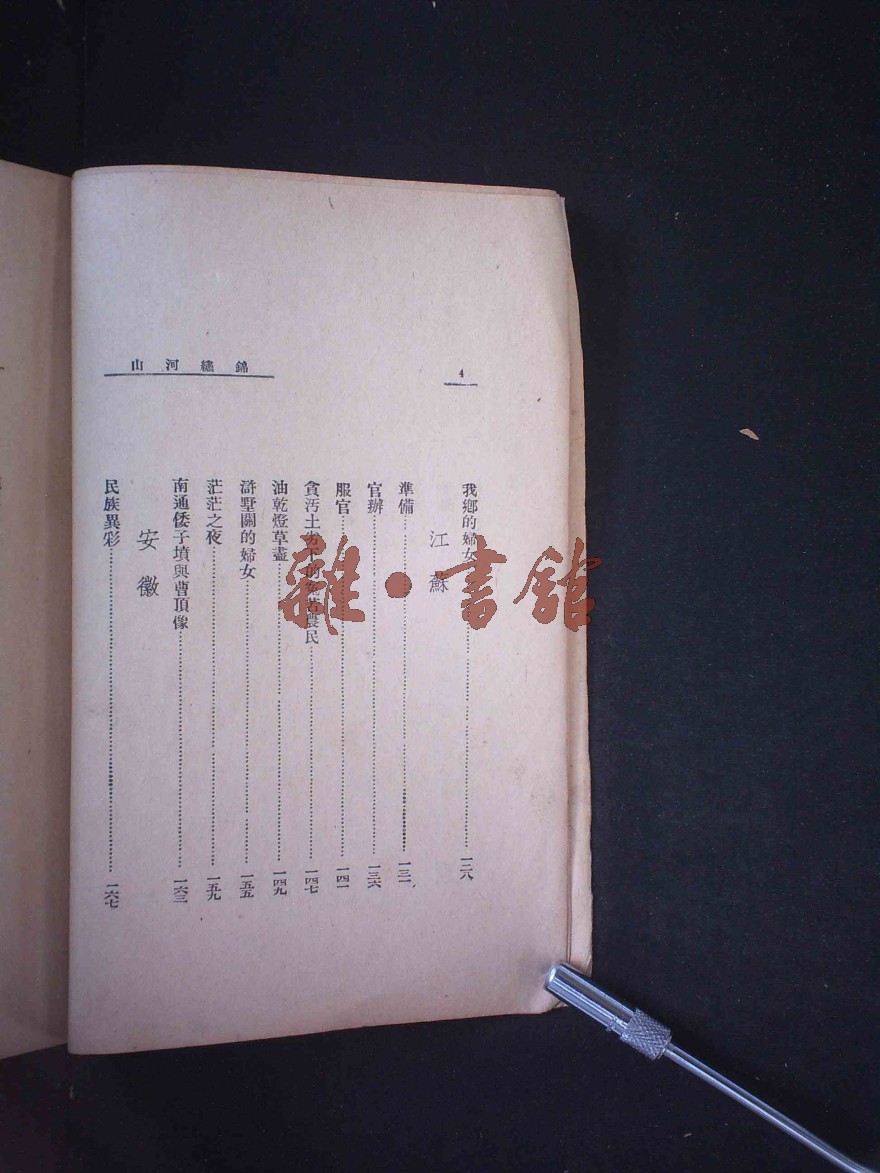 錦繡河山
4
我鄉的婦女……一二八
江蘇
準備……一三一
官辦……一三六
服官……一四一
貪汚土劣下的窮苦農民……一四七
油乾燈草盡……一四九
滸墅關的婦女……一五五
茫茫之夜……一五九
南通倭子墳與曹頂像……一六三
安徽
民族異彩……一六七
雜·書館